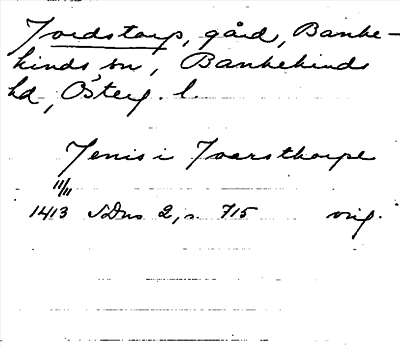 Tordstorp, gård, Banke-
kinds sn, Bankekinds
hd, Österg. l.
Jenis i Toorsthorpe
11/11
1413 SDns 2, s. 715 orig.